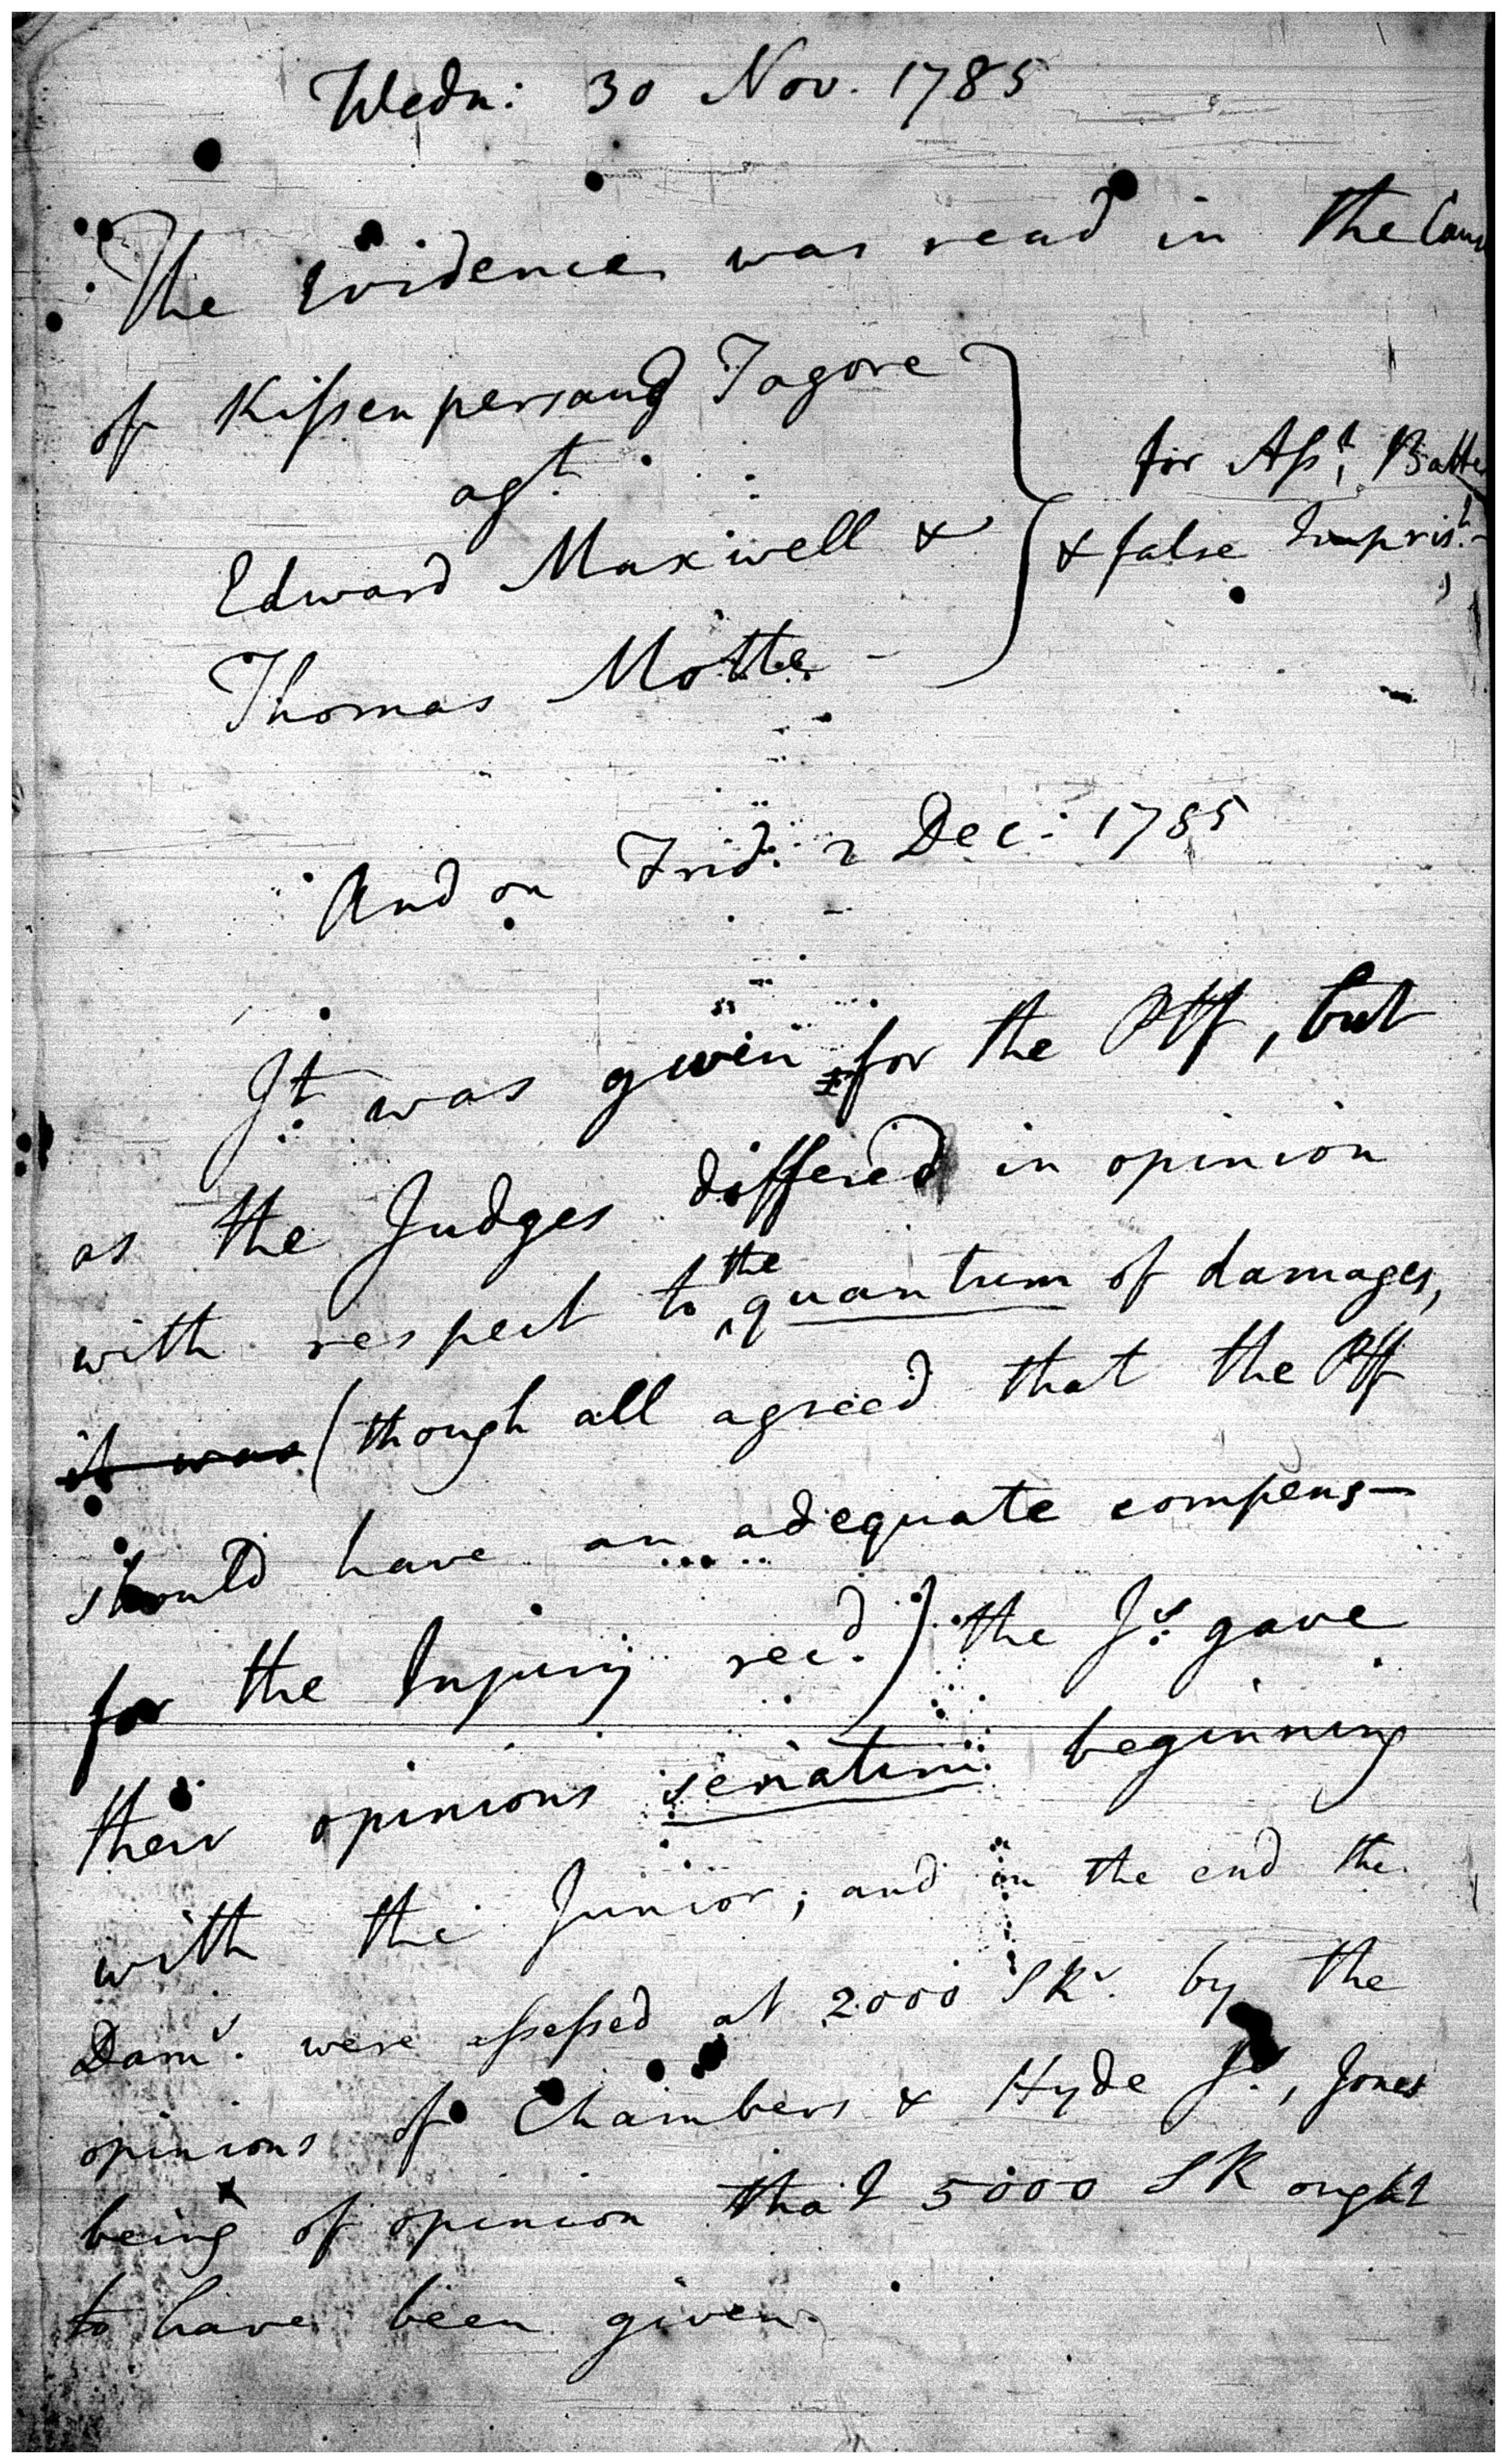 Wedn: 30 Nov. 1785
The Evidence was read in the Caus
of Kissenpersaud Tagore
agt
for Asst, Batte
Edward Maxwell &
& false Imprist.
Thomas Motte -
And on Frid: 2 Dec: 1785
It was given for the Plff, but
as the Judges differed in opinion
with respect to the quantum of damages,
it was (though all agreed that the Plff
should have an adequate compens-
for the Injury recd.) the Js. gave
their opinions seriatim beginning
with the Junior; and in the end the
Dams. were assessed at 2000 SRs. by the
opinions of Chambers & Hyde Js., Jones
being of opinion that 5000 SR ought
to have been given.